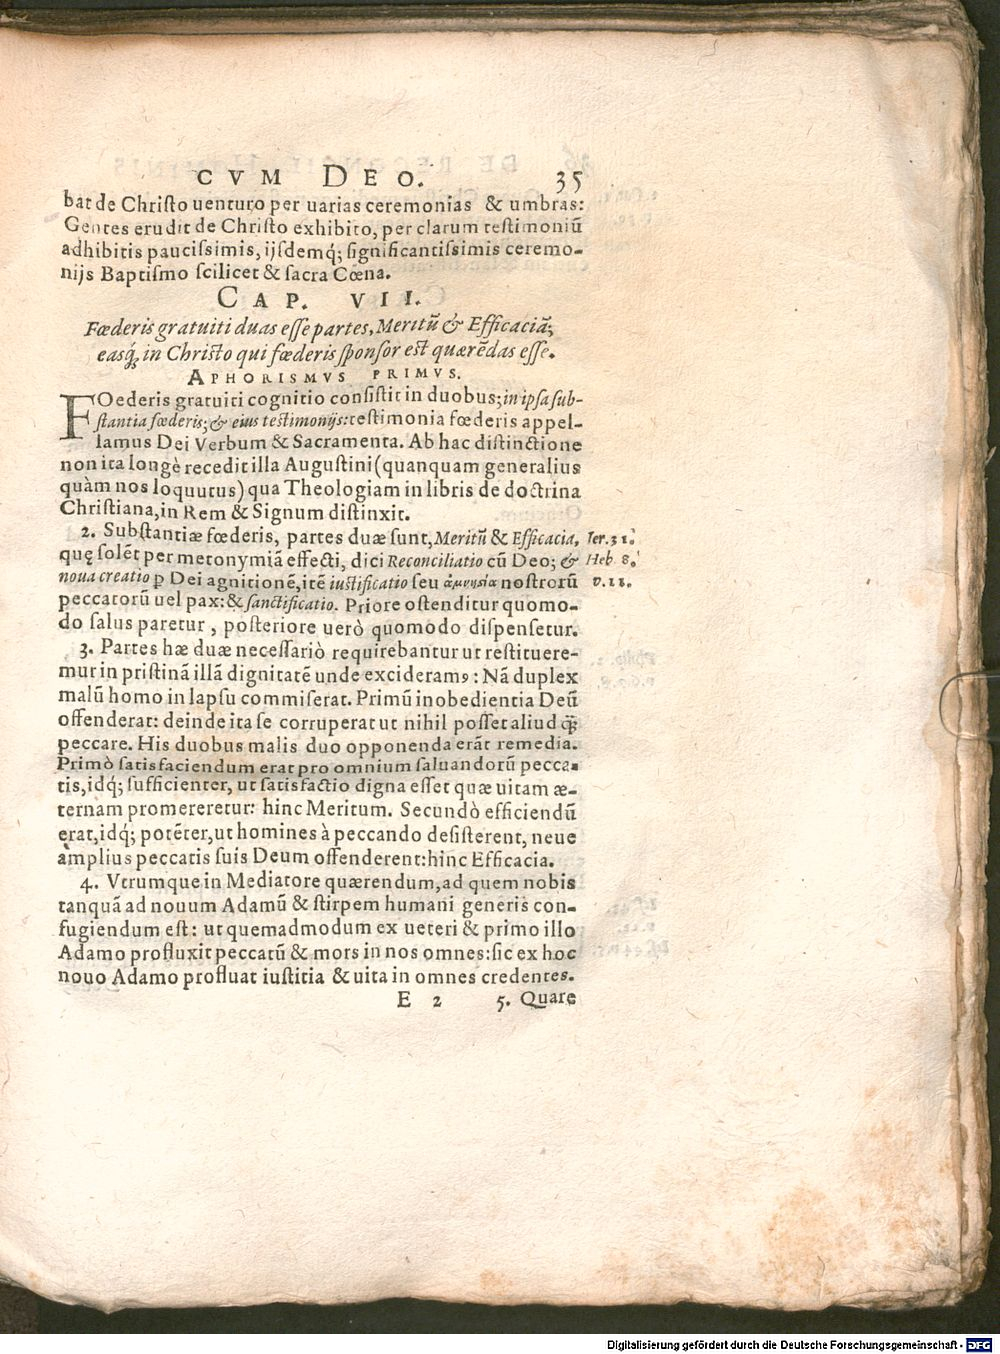 CVM DEO. 35
bat de Christo uenturo per uarias ceremonias & umbras:
Gentes erudit de Christo exhibito, per clarum testimoniū
adhibitis paucissimis, ijsdemq́; significantissimis ceremo-
nijs Baptismo scilicet & sacra Cœna.
CAP. VII.
Fœderis gratuiti duas esse partes, Meritū & Efficaciā;
easq́; in Christo qui fœderis sponsor est quærēdas esse.
APHORISMVS PRIMVS.
FOederis gratuiti cognitio consistit in duobus; in ipsa sub-
stantia fœderis; & eius testimonijs: testimonia fœderis appel-
lamus Dei Verbum & Sacramenta. Ab hac distinctione
non ita longè recedit illa Augustini (quanquam generalius
quàm nos loquutus) qua Theologiam in libris de doctrina
Christiana, in Rem & Signum distinxit.
2. Substantiæ fœderis, partes duæ sunt, Meritū & Efficacia, Ier. 31.
quę solēt per metonymiā effecti, dici Reconciliatio cū Deo; & Heb. 8.
noua creatio ꝑ Dei agnitionē, itē iustificatio seu ἀμνησία nostrorū v. 11.
peccatorū uel pax: & sanctificatio. Priore ostenditur quomo-
do salus paretur, posteriore uerò quomodo dispensetur.
3. Partes hæ duæ necessariò requirebantur ut restituere-
mur in pristinā illā dignitatē unde excideramꝰ: Nā duplex
malū homo in lapsu commiserat. Primū inobedientia Deū
offenderat: deinde ita se corruperat ut nihil posset aliud q̄;
peccare. His duobus malis duo opponenda erāt remedia.
Primò satisfaciendum erat pro omnium saluandorū pecca-
tis, idq́; sufficienter, ut satisfactio digna esset quæ uitam æ-
ternam promereretur: hinc Meritum. Secundò efficiendū
erat, idq́; potēter, ut homines à peccando desisterent, neue
amplius peccatis suis Deum offenderent: hinc Efficacia.
4. Vtrumque in Mediatore quærendum, ad quem nobis
tanquā ad nouum Adamū & stirpem humani generis con-
fugiendum est: ut quemadmodum ex ueteri & primo illo
Adamo profluxit peccatū & mors in nos omnes: sic ex hoc
nouo Adamo profluat iustitia & uita in omnes credentes.
E 2 5. Quare
Digitalisierung gefördert durch die Deutsche Forschungsgemeinschaft - DFG